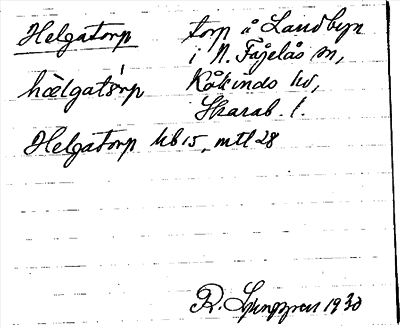 Helgatorp torp å Landbyn
i N. Fågelås sn,
hælgatårp Kåkinds hd,
Skarab. l.
Helgatorp hb 15, mtl 28
R. Ljunggren 1930